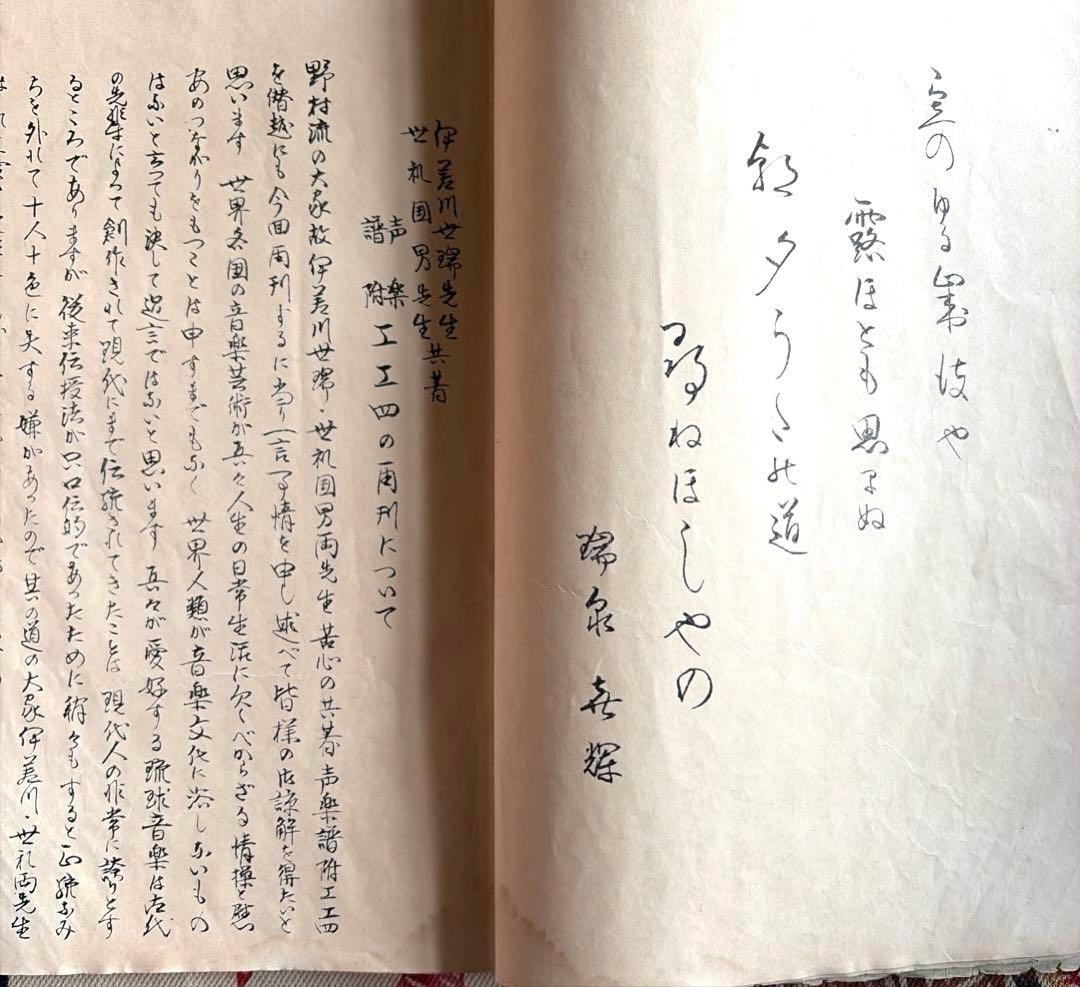 露ほとも思まぬ
朝夕うたの道
ねほしやの
瑞泉
伊差川世瑞先生
世礼国男先生 共著
声楽譜附 工工四の再刊について
野村流の大家故伊差川世瑞・世礼国男両先生苦心の共著声楽譜附工工四
を僭越にも今回再刊するに当り一言事情を申し述べて皆様の御諒解を得たいと
思います 世界各国の音楽芸術が吾々人生の日常生活に欠くべからざる情操と慰
あのつながりをもつことは申すまでもなく 世界人類が音楽文化に浴しないもの
はないと言っても決して過言ではないと思います 吾々が愛好する琉球音楽は古代
の先輩によって創作されて現代にまで伝統されてきたことは 現代人の非常に誇りとす
るところでありますが従来伝授法が只口伝的であったために稍々もすると正統なみ
ちを外れて十人十色に失する嫌があったので其の道の大家伊差川・世礼両先生